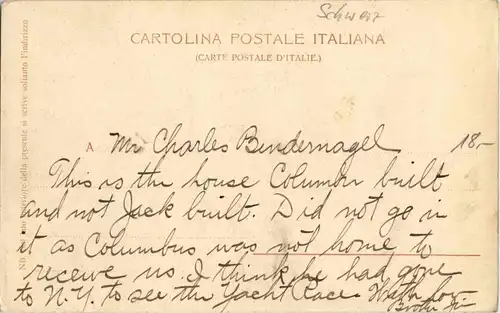 Schweiz
CARTOLINA POSTALE ITALIANA
(CARTE POSTALE D'ITALIE.)
A Mr Charles Bendernagel 18.-
This is the house Columbus built
and not Jack built. Did not go in
it as Columbus was not home to
receive us. I think he had gone
to N.Y. to see the Yacht Race. With love
Brother
della presente si scrive soltanto l'indirizzo